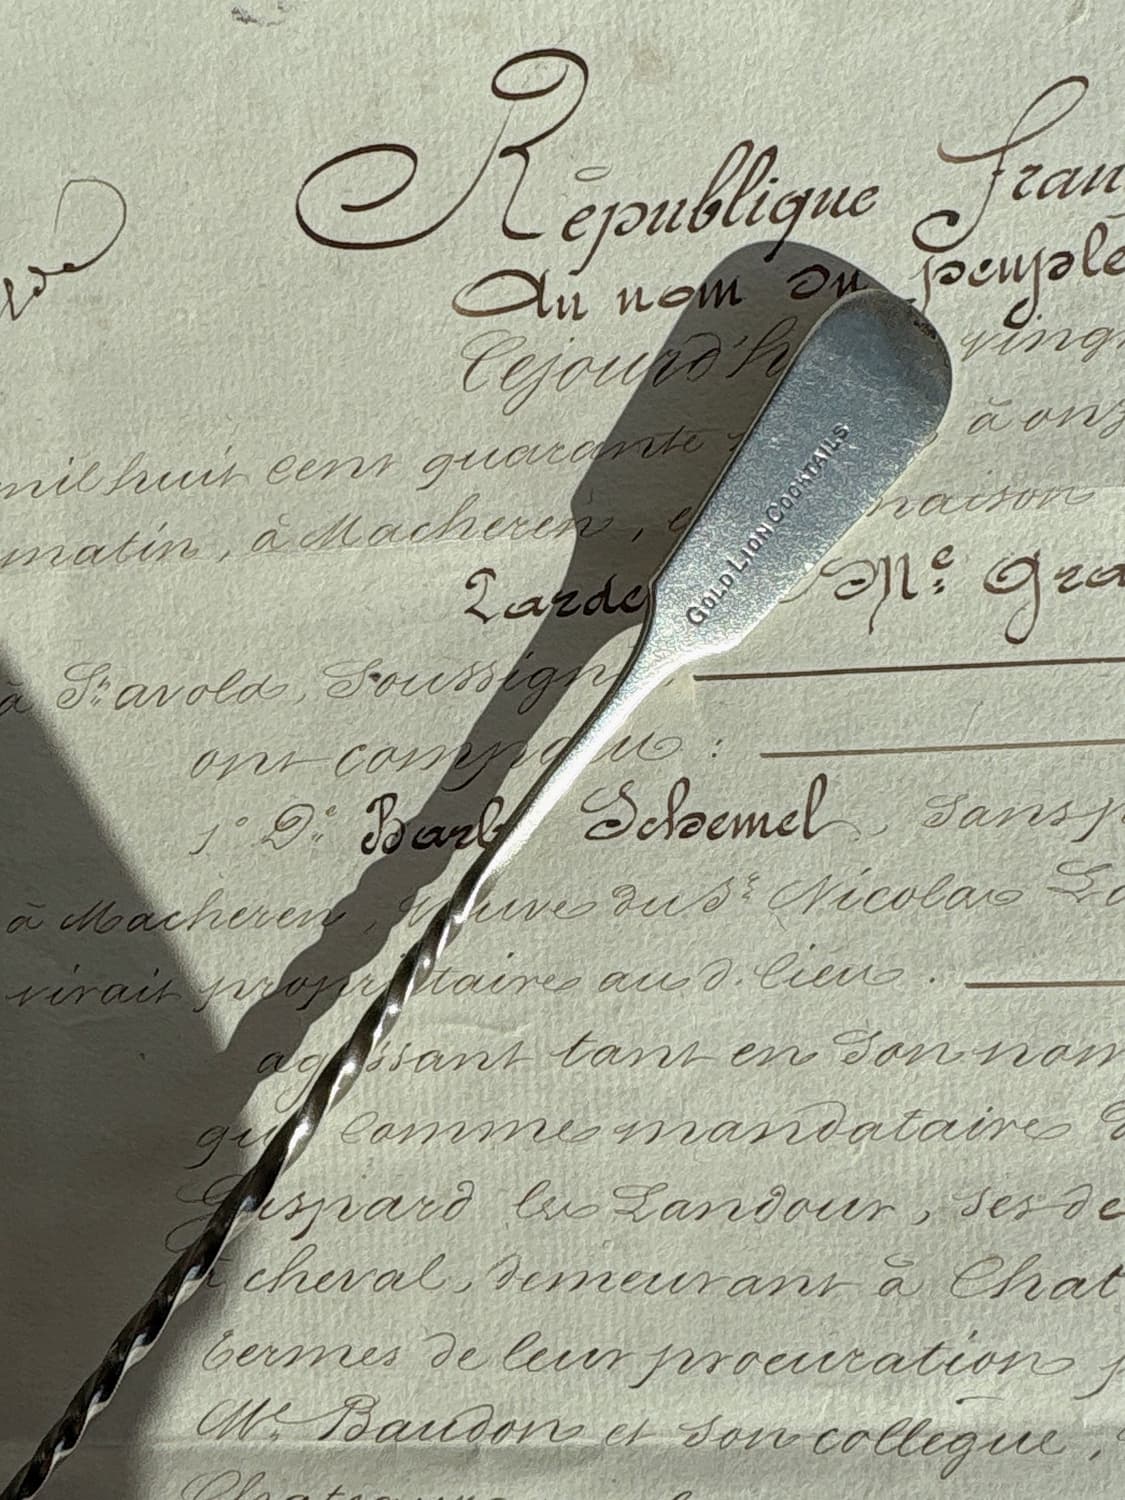 République fran
Au nom du peuple
Cejourd'h vingt
mil huit cent quarante à onz
matin, à Macheren, maison
Parde Me. Gra
à St. avold, Soussign
ont comparu :
1° De. Barb Schemel, sans p
à Macheren, Veuve du Sr. Nicolas La
vivait propriétaire au d. lieu.
agissant tant en son nom
qu comme mandataire
Gaspard les Landour, ses de
à cheval, demeurant à Chat
termes de leur procuration p
Me. Baudon et son collègue,
GOLD LION COCKTAILS